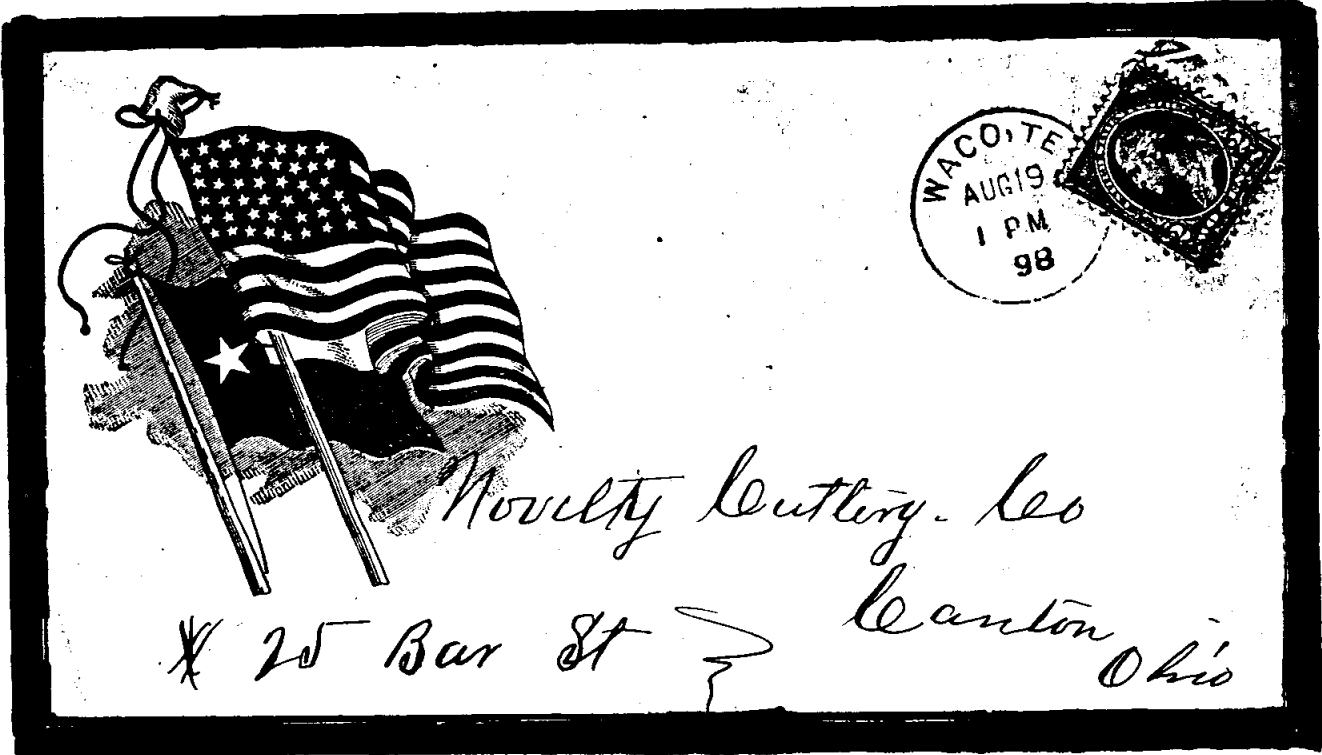 WACO, TE
AUG 19
1 PM
98
Novelty Cutlery. Co
Canton
Ohio
# 25 Bar St